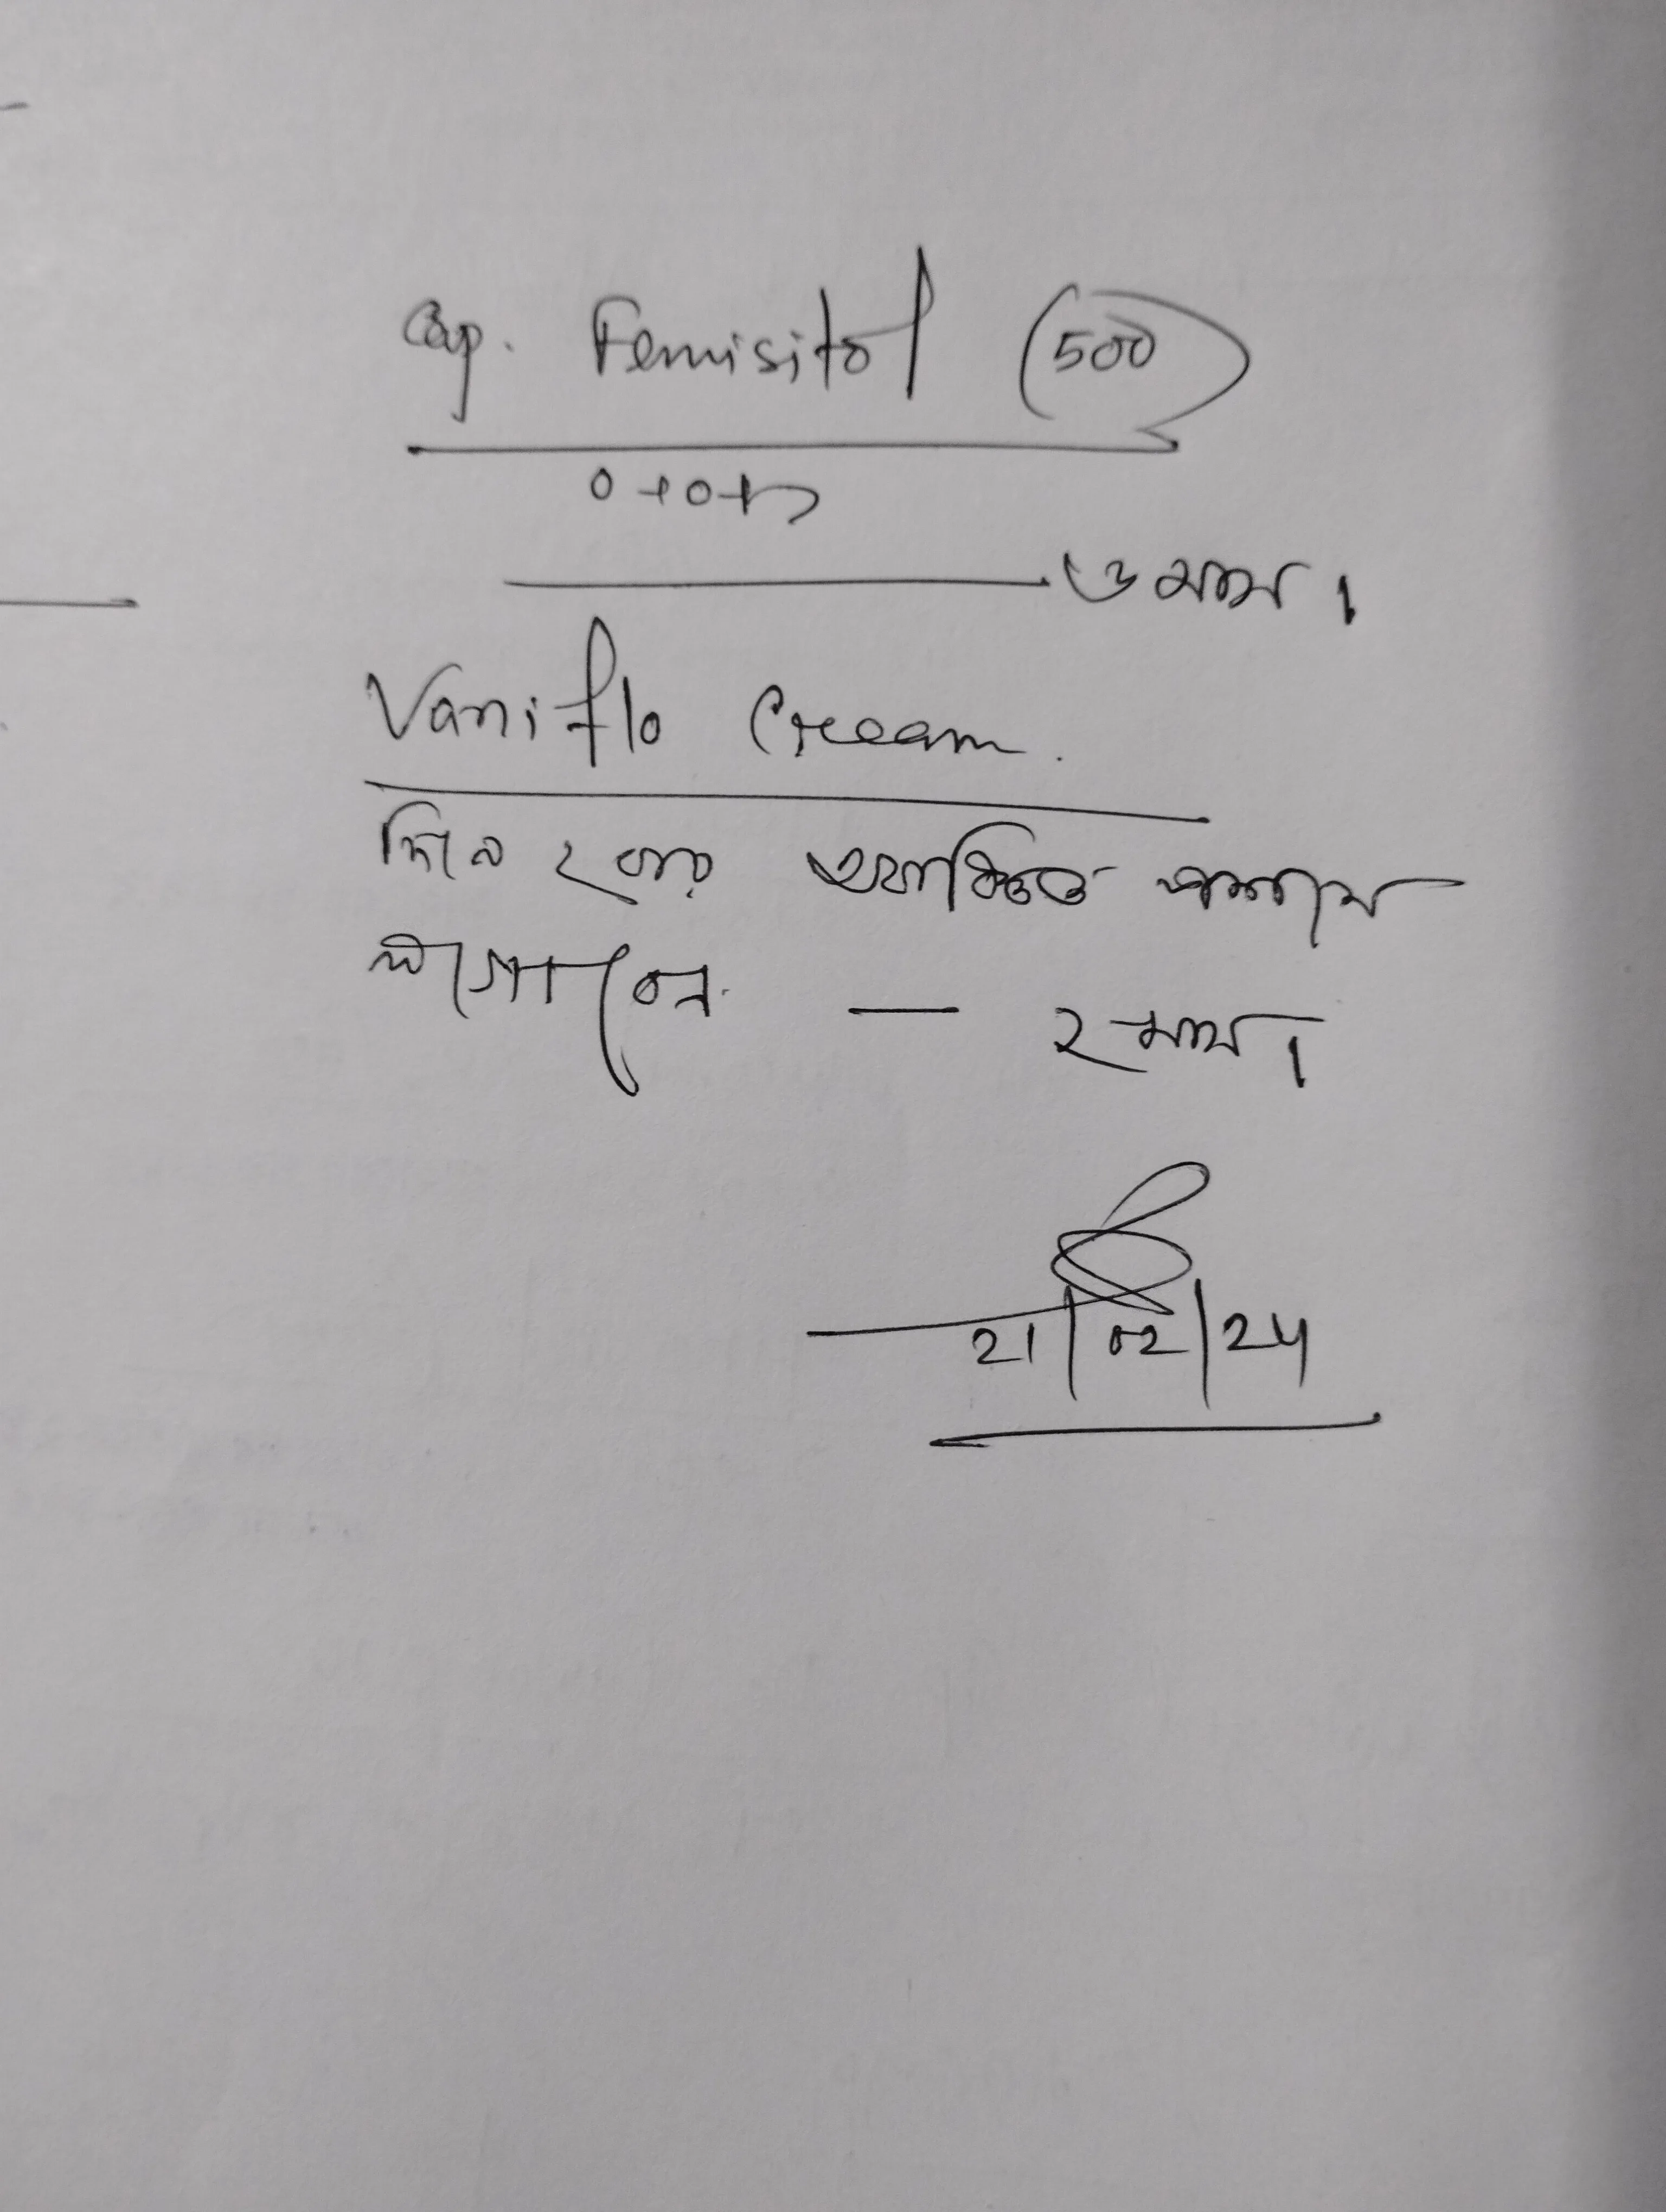 Cap. Femisitol (500)
0+0+১
৩ মাস।
Vaniflo Cream.
দিনে ২ বার আক্রান্ত স্থানে
লাগাবেন — ২ মাস।
21/02/24